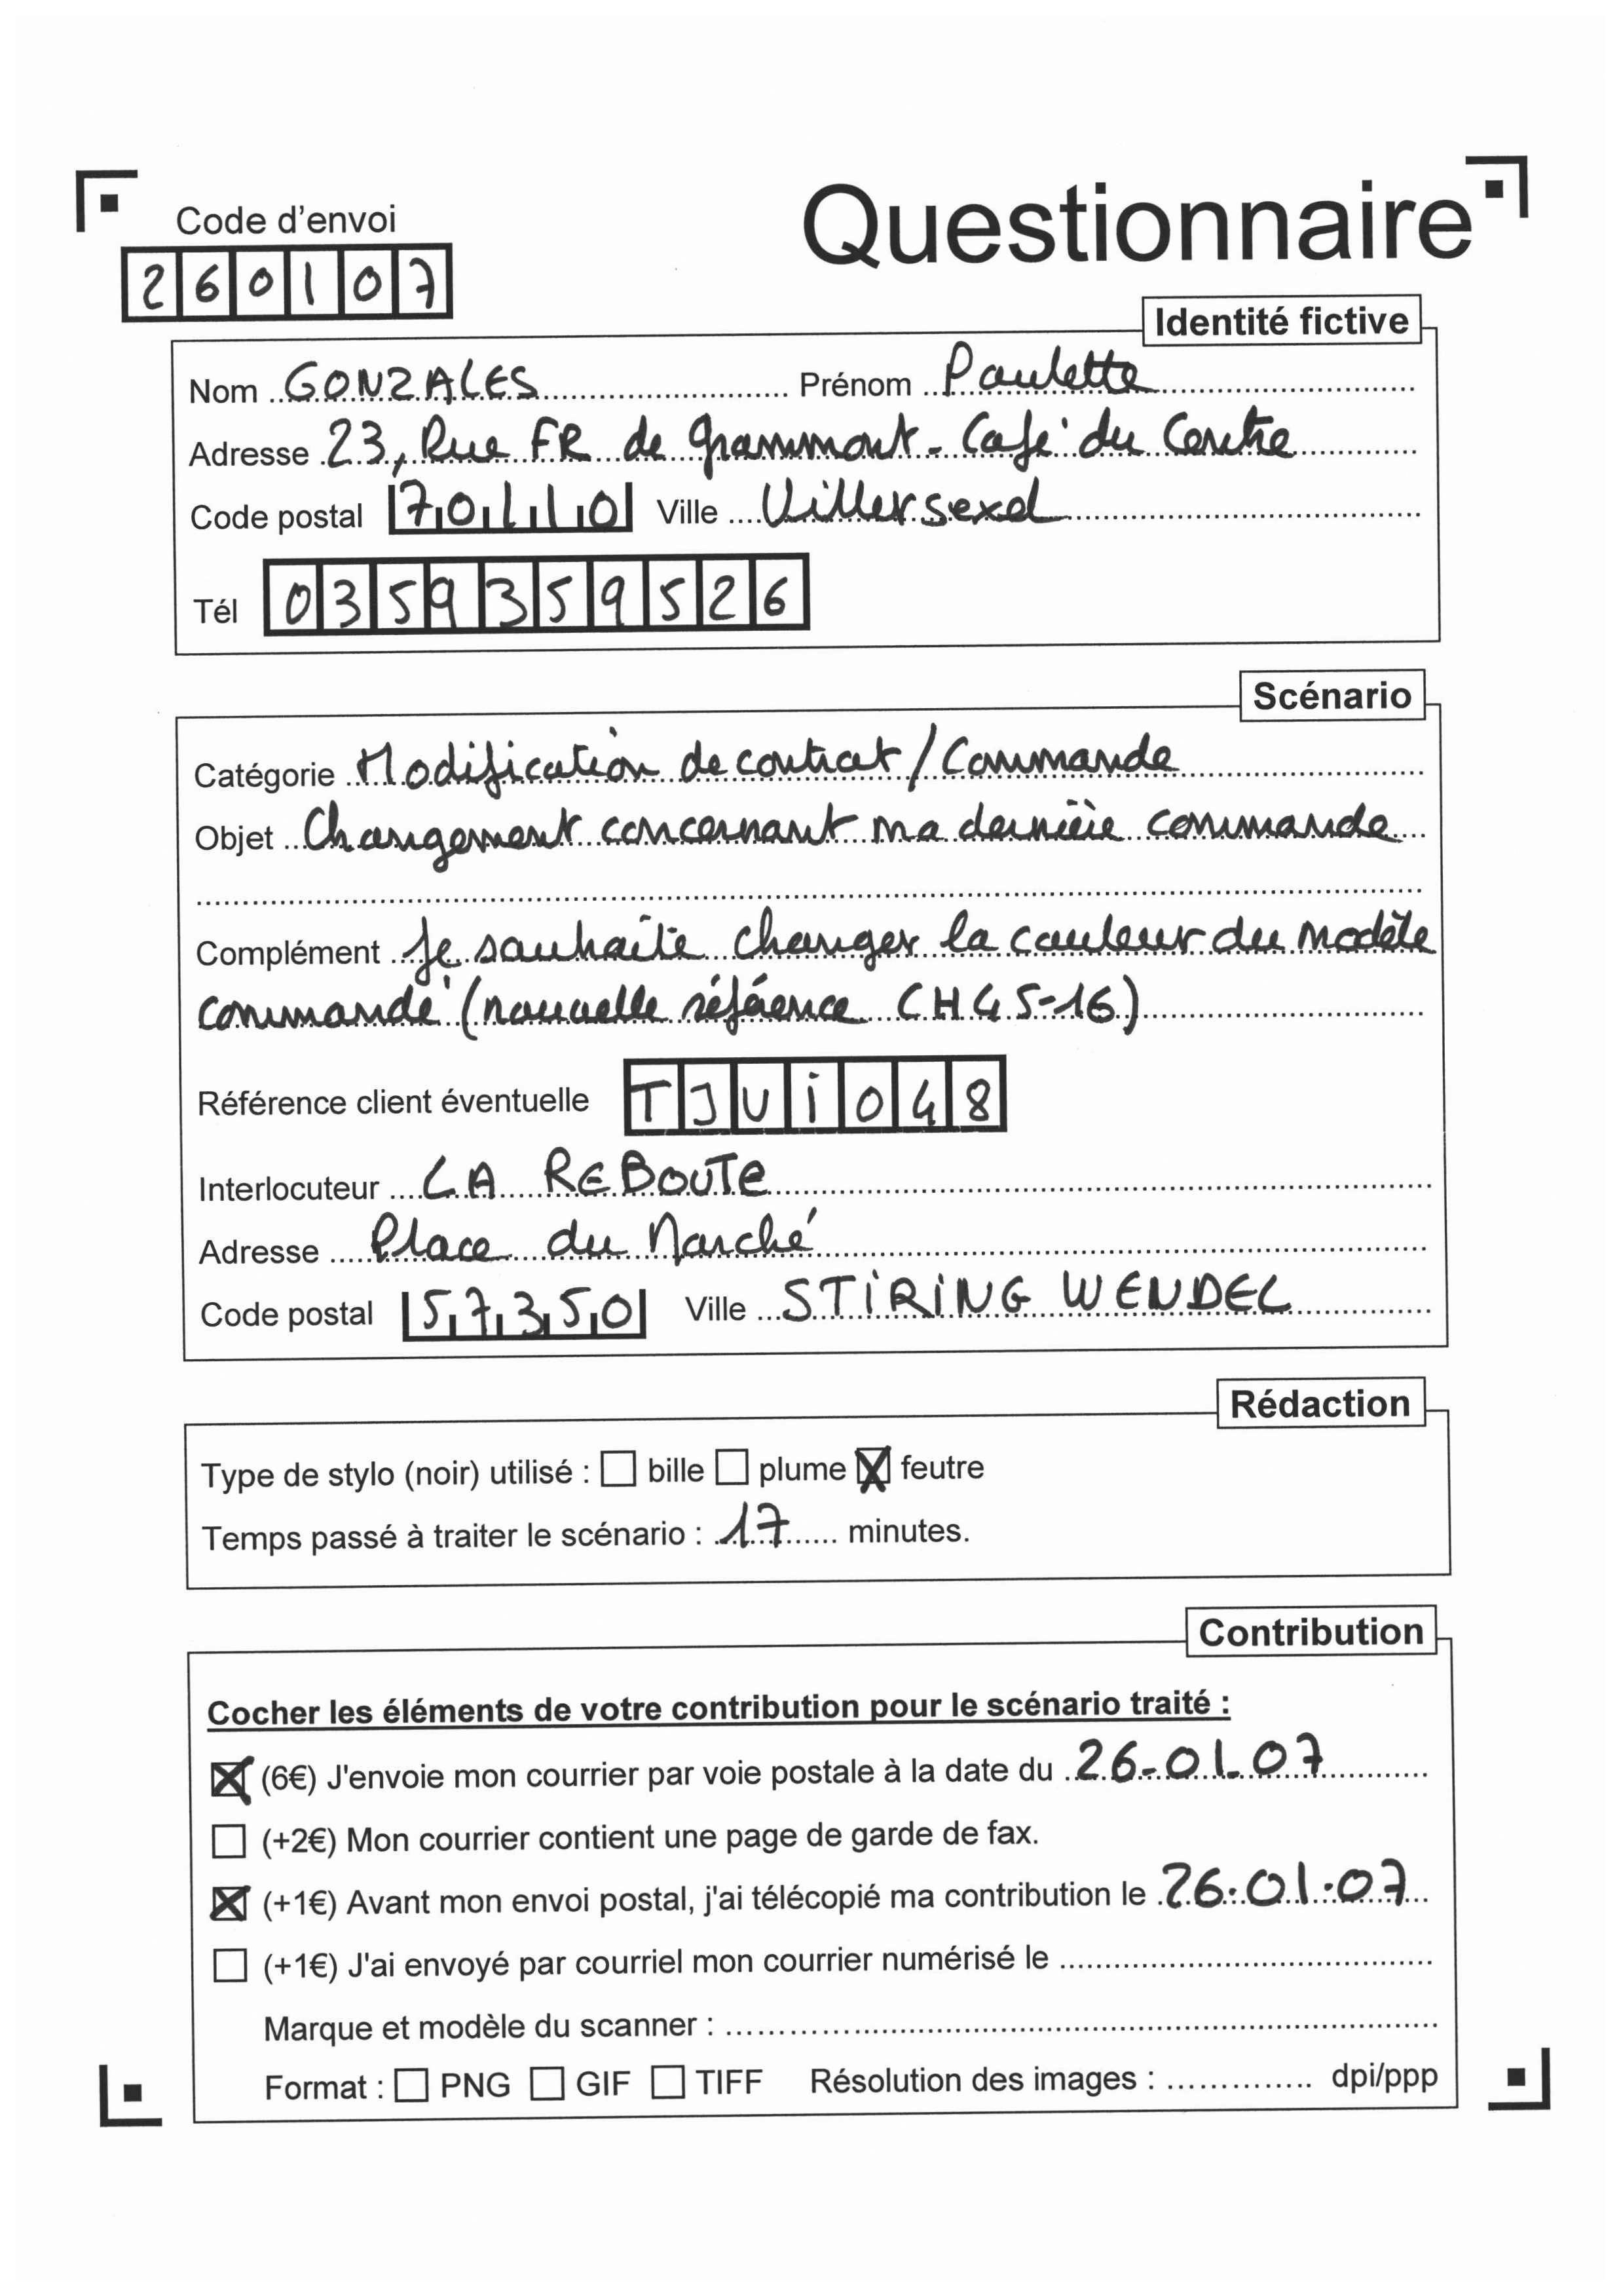 Questionnaire
Code d'envoi
260107
Identité fictive
Nom GONZALES Prénom Paulette
Adresse 23, Rue FR de Grammont - Café du Centre
Code postal 70110 Ville Villersexel
Tél 0359359526
Scénario
Catégorie Modification de contrat / Commande
Objet Changement concernant ma dernière commande
Complément Je souhaite changer la couleur du modèle
commandé (nouvelle référence CH45-16)
Référence client éventuelle TJUi048
Interlocuteur LA REBOUTE
Adresse Place du Marché
Code postal 57350 Ville STIRING WENDEL
Rédaction
Type de stylo (noir) utilisé : ☐ bille ☐ plume ☒ feutre
Temps passé à traiter le scénario : 17 minutes.
Contribution
Cocher les éléments de votre contribution pour le scénario traité :
☒ (6€) J'envoie mon courrier par voie postale à la date du 26-01.07
☐ (+2€) Mon courrier contient une page de garde de fax.
☒ (+1€) Avant mon envoi postal, j'ai télécopié ma contribution le 26.01.07
☐ (+1€) J'ai envoyé par courriel mon courrier numérisé le
Marque et modèle du scanner :
Format : ☐ PNG ☐ GIF ☐ TIFF Résolution des images : dpi/ppp